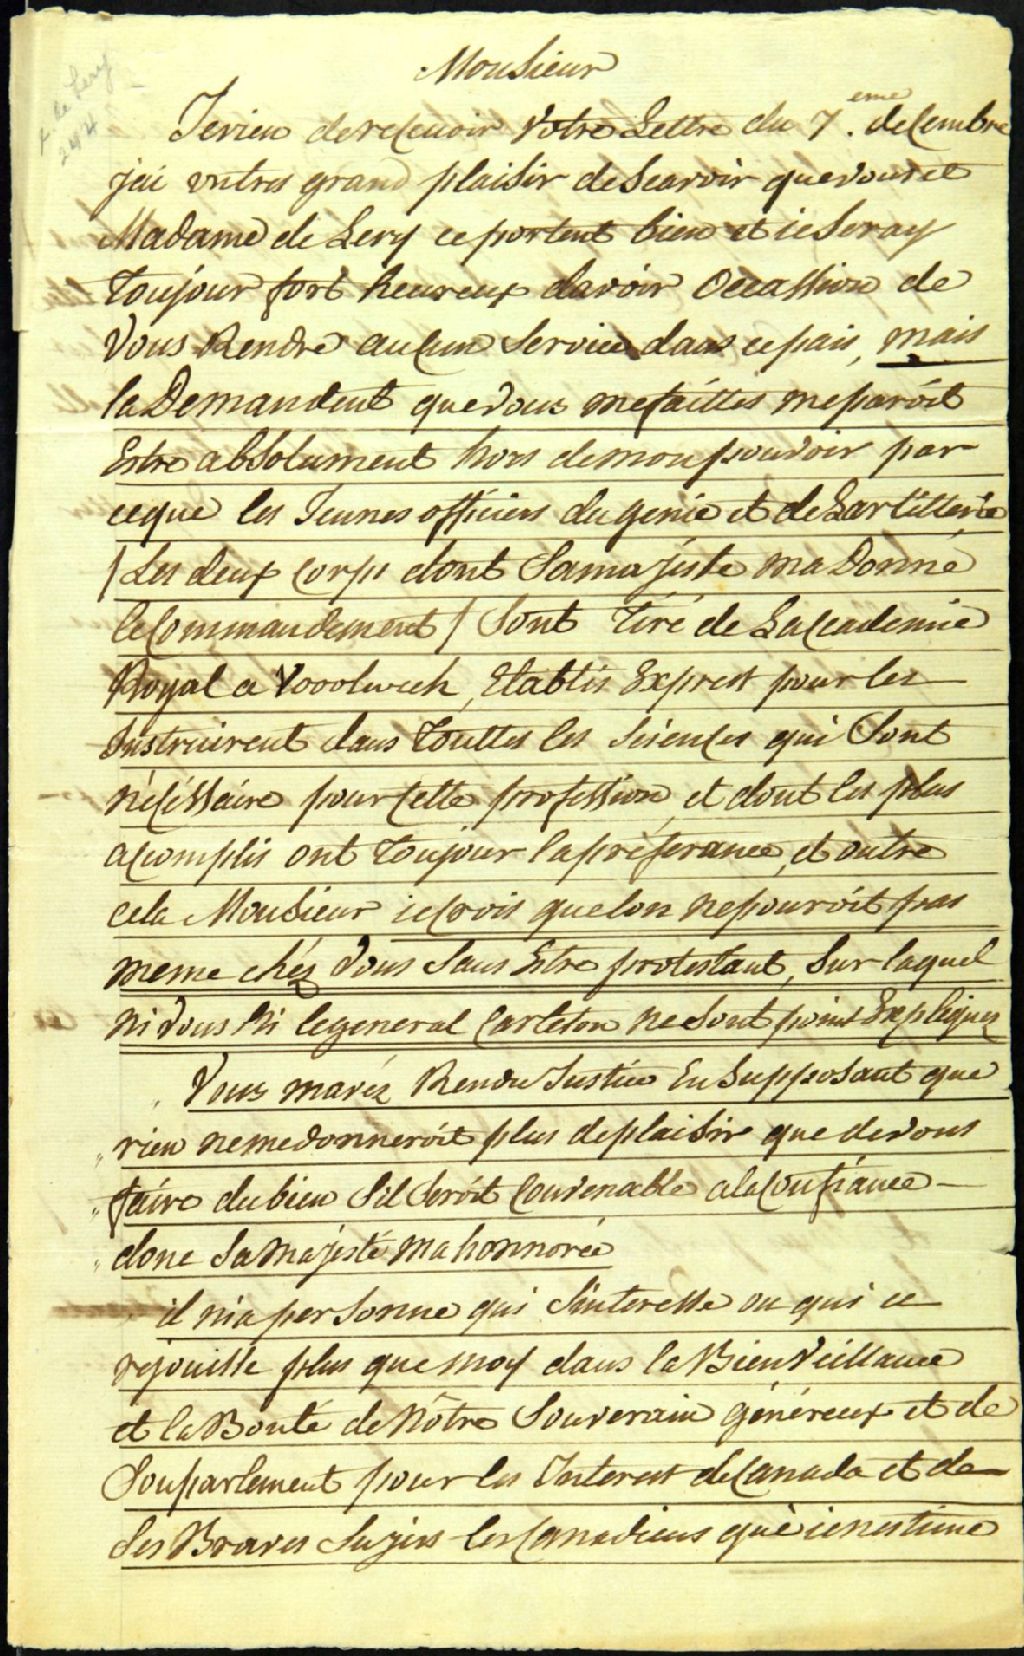 Monsieur
Jevien derecevoir Votre Lettre du 7.eme decembre
jai untres grand plaisir descavoir quevouset
Madame de Lery ceportent bien et jeseray
Toujour fort heureux davoir Occassion de
Vous Rendre aucun Service dans cepais, mais
laDemandeut quevous mefaittes meparóit
Estre absolument hors demonpouvoir par
ceque les Jeunes officiers dugenie et deLartillerie
/ Les deux Corps dont Samajeste ma Donné
leCommandement / Sont Tiré de Lacademie
Royal a Voolwich, Etablis Exprest pour les
Instruirent dans Touttes les Siences qui Sont
nécéssaire pourcette profession, et dont les plus
acomplis ont Toujour lapréferance, et outre
cela Monsieur jecrois quelon nepouroit pas
meme chéz Vous Sans Estre protestant, Sur laquel
ni vous Ni legeneral Carleton neSont point Expliquez
Vous maréz Rendu Justice EnSupposant que
rien nemedonneróit plus deplaisir que devous
faire dubien S'il Seróit Convenable alaConfiance
donc Samajesté ma honnorée
il nia personne qui S'interesse ou qui ce
rejouisse plus que moy dans laBienVeillance
et laBonté deNôtre Souverain généreux et de
Sonparlement pour les Interest deCanada et de
Ses Braves Sujets lesCanadiens que jenestime